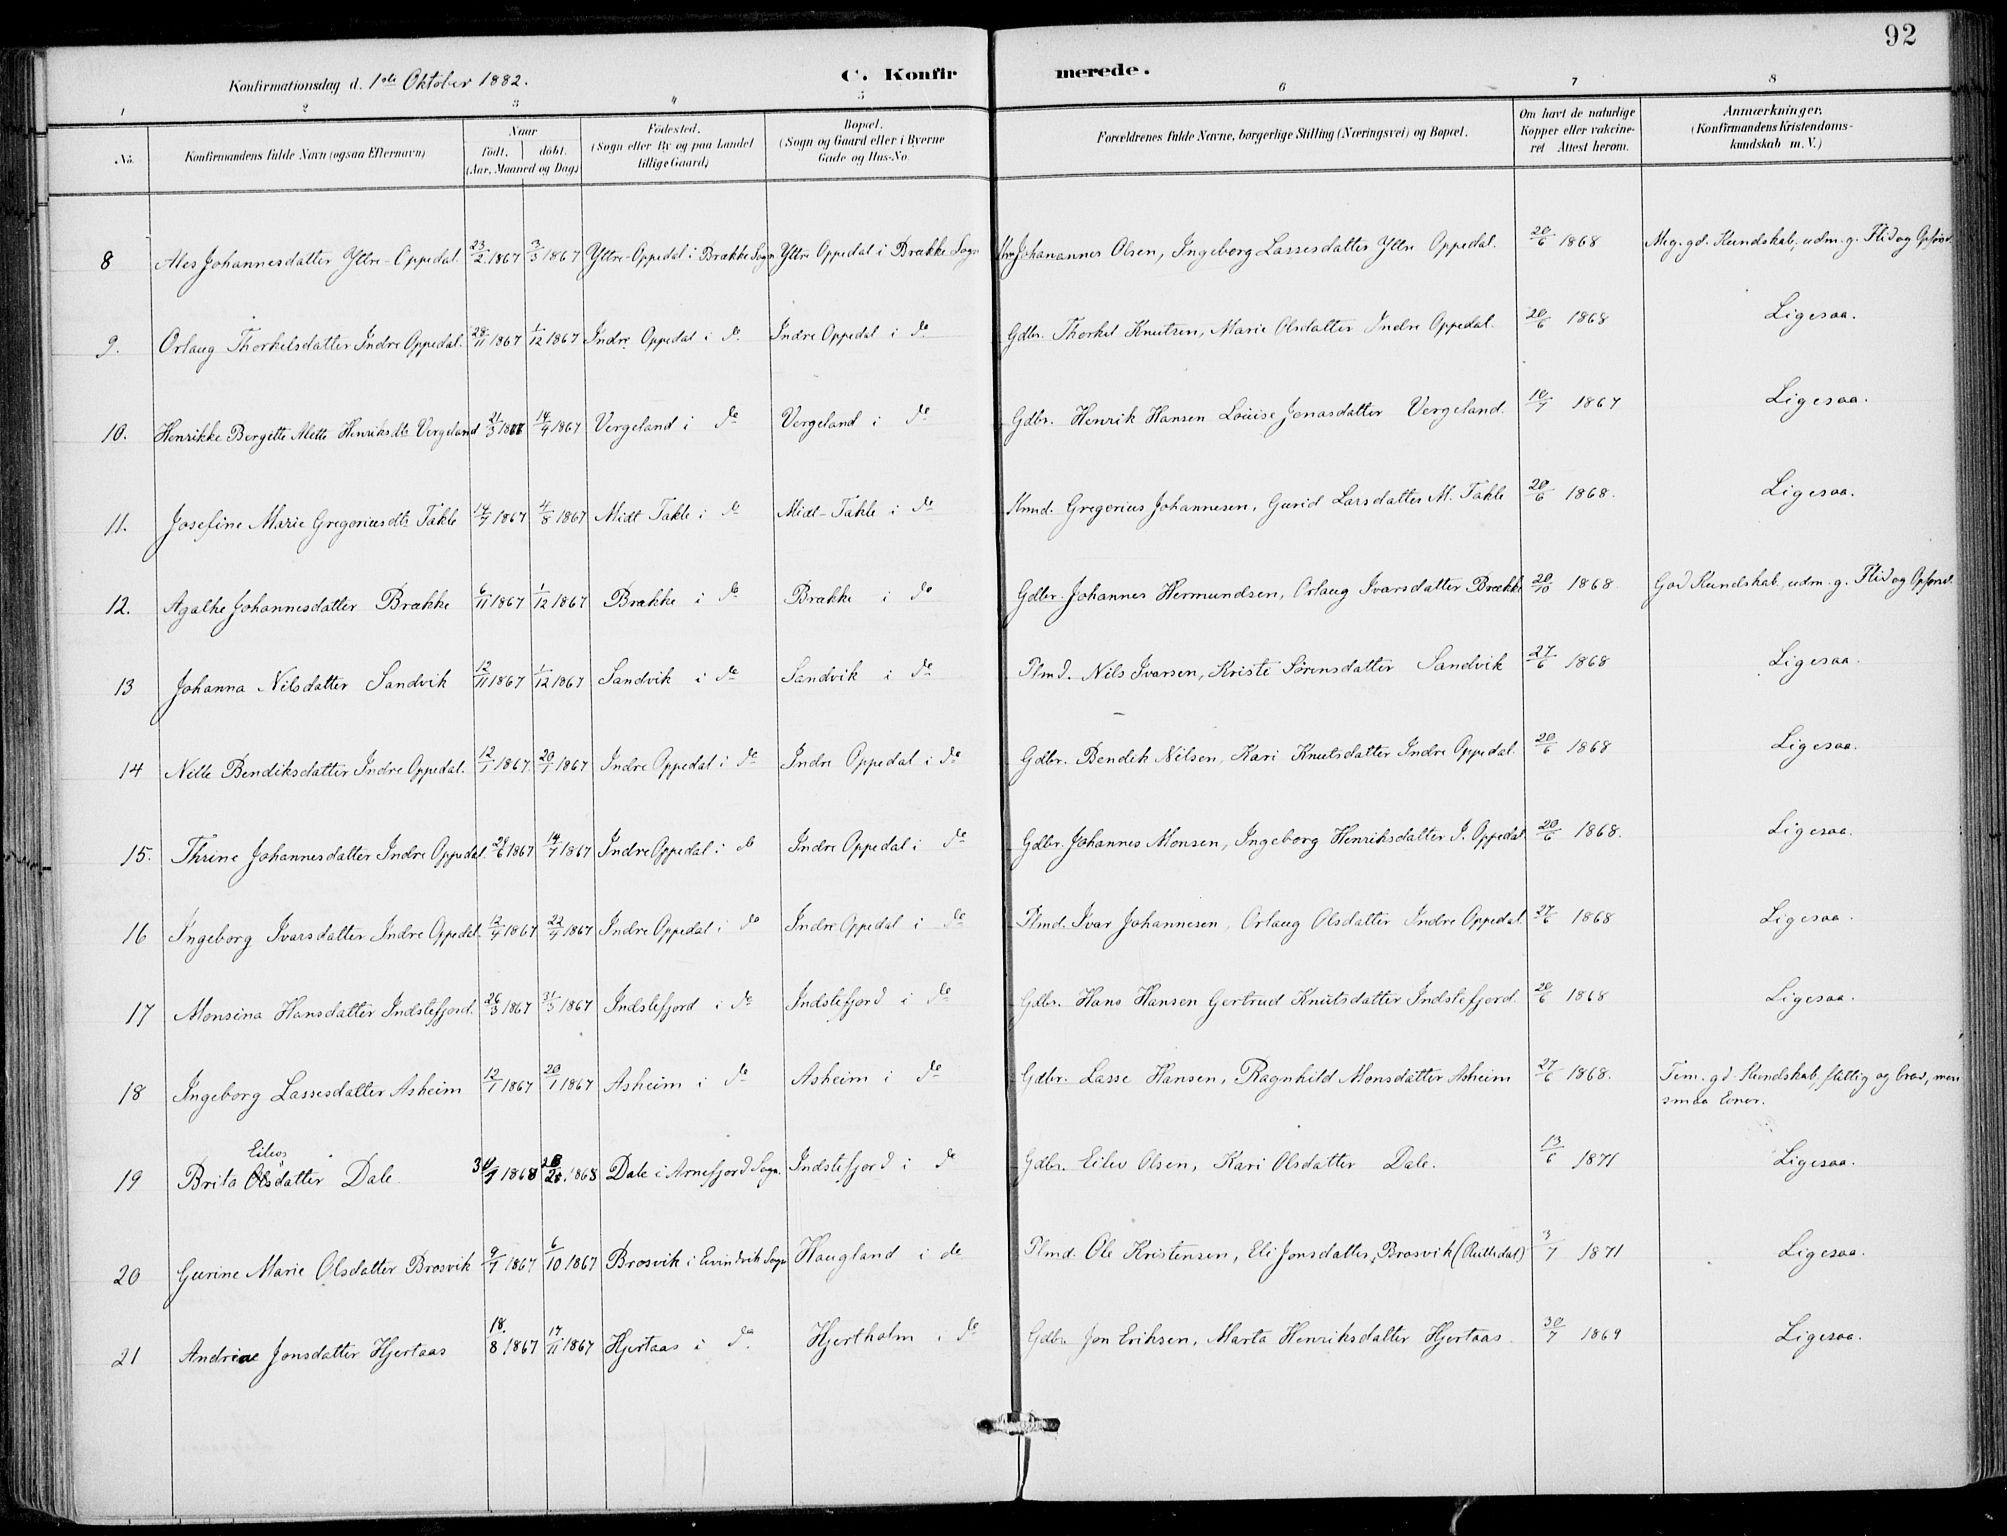 92
Konfirmationsdag d. 1ste Oktober 1882.
C. Konfirmerede.
1 2 3 4 5 6 7 8
No. Konfirmandens fulde Navn (ogsaa Efternavn) Naar født. døbt. (Aar, Maaned og Dag.) Fødested. (Sogn eller By og paa Landet tillige Gaard.) Bopæl. (Sogn og Gaard eller i Byerne Gade og Hus-No. Forældrenes fulde Navne, borgerlige Stilling (Næringsvei) og Bopæl. Om havt de naturlige Kopper eller vakcineret Attest herom. Anmærkninger. (Konfirmandens Kristendomskundskab m. V.)
8 Ales Johannesdatter Yttre-Oppedal 23/2 1867 3/3 1867 Yttre-Oppedal i Brække Sogn Yttre Oppedal i Brække Sogn Johanannes Olsen, Ingeborg Lassesdatter Yttre Oppedal. 20/6 1868 Meg. gd. Kundskab, udm. g. Flid og Opførsel
9. Orlaug Thorkelsdatter Indre Oppedal. 28/11 1867 1/12 1867 Indre Oppedal i do Indre Oppedal i do Gdbr. Thorkel Knutsen, Marie Olsdatter Indre Oppedal. 20/6 1868 Ligesaa.
10. Henrikke Bergitte Mette Henriksdtr Vergeland 21/3 1867 14/4 1867 Vergeland i do Vergeland i do Gdbr. Henrik Hansen Louise Jonasdatter Vergeland. 10/7 1867 Ligesaa.
11. Josefine Marie Gregoriusdtr Takle 14/7 1867 4/8 1867 Midt Takle i do Midt-Takle i do Gregorius Johannesen, Gurid Larsdatter M. Takle 20/6 1868. Ligesaa.
12. Agathe Johannesdatter Brække 6/11 1867 1/12 1867 Brække i do Brække i do Gdbr. Johannes Hermundsen, Orlaug Ivarsdatter Brække 20/10 1868 God Kundskab, udm. g. Flid og Opførsel.
13 Johanna Nilsdatter Sandvik 12/11 1867 1/12 1867 Sandvik i do Sandvik i do Plmd. Nils Ivarsen, Kristi Sørensdatter Sandvik 27/6 1868 Ligesaa.
14 Nille Bendiksdatter Indre Oppedal. 12/7 1867. 20/7 1867 Indre Oppedal i do Indre Oppedal i do Gdbr. Bendik Nilsen, Kari Knutsdatter Indre Oppedal. 20/6 1868 Ligesaa.
15. Thrine Johannesdatter Indre Oppedal. 26/6 1867 14/7 1867 Indre Oppedal i do Indre Oppedal i do Gdbr. Johannes Monsen, Ingeborg Henriksdatter I. Oppedal 20/6 1868. Ligesaa.
16 Ingeborg Ivarsdatter Indre Oppedal. 12/4 1867 22/4 1867 Indre Oppedal i do Indre Oppedal i do Plmd. Ivar Johannesen, Orlaug Olsdatter Indre Oppedal 27/6 1868 Ligesaa.
17 Monsina Hansdatter Indstefjord. 26/3 1867 31/3 1867 Indstefjord i do Indstefjord i do Gdbr. Hans Hansen Gertrud Knutsdatter Indstefjord. 20/6 1868 Ligesaa.
18 Ingeborg Lassesdatter Asheim 12/1 1867 20/1 1867 Asheim i do Asheim i do Gdbr. Lasse Hansen, Ragnhild Monsdatter Asheim 27/6 1868. Tem. gd. Kundskab, flittig og brav, men smaa Evner.
19 Brita Eilevs Olsdatter Dale 1868 1868 Dale i Arnefjord Sogn. Indstefjord i do Gdbr. Eilev Olsen, Kari Olsdatter Dale. 13/6 1871 Ligesaa.
20 Gurine Marie Olsdatter Brosvik 9/7 1867 6/10 1867 Brosvik i Evindvik Sogn Haugland i do Plmd. Ole Kristensen, Eli Jonsdatter, Brosvik (Rutledal) 3/7 1871 Ligesaa.
21 Andrine Jonsdatter Hjertaas 18/8 1867 17/11 1867 Hjertaas i do Hjertholm i do Gdbr. Jon Eriksen, Marta Henriksdatter Hjertaas 30/7 1869 Ligesaa.